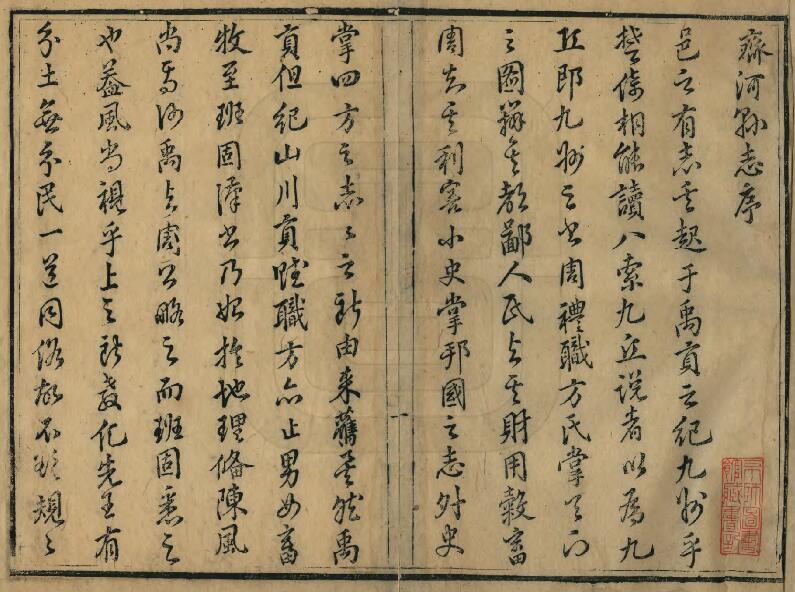 齊河縣志序
邑之有志其起于禹貢之紀九州乎
楚倚相能讀八索九丘說者以為九
丘即九州之書周禮職方氏掌天下
之圖辨其都鄙人民與其財用穀畜
周知其利害小史掌邦國之志外史
掌四方之志志之所由來舊矣然禹
貢但紀山川貢賦職方亦止男女畜
牧至班固漢書乃始於地理條陳風
尚焉何禹與周公略之而班固悉之
也蓋風尚視乎上之所教化先王有
分土無分民一道同俗故不必規規